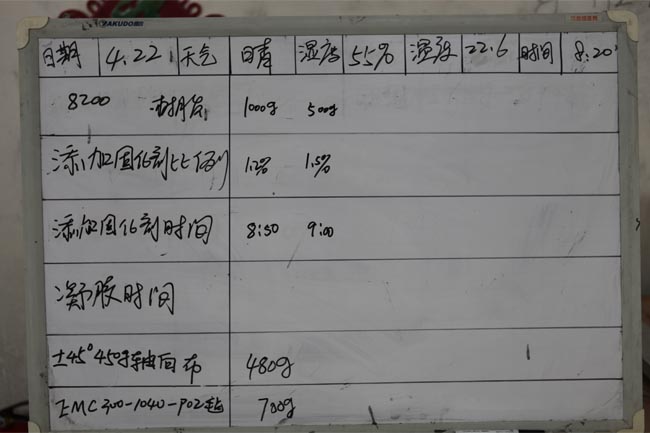 YAKUDO
日期 4.22 天气 晴 湿度 55% 温度 22.6 时间 8:20
8200 树脂 1000g 500g
添加固化剂比例 1.2% 1.5%
添加固化剂时间 8:50 9:00
凝胶时间
±45° 450 轴向布 480g
EMC300-1040-P02毡 700g